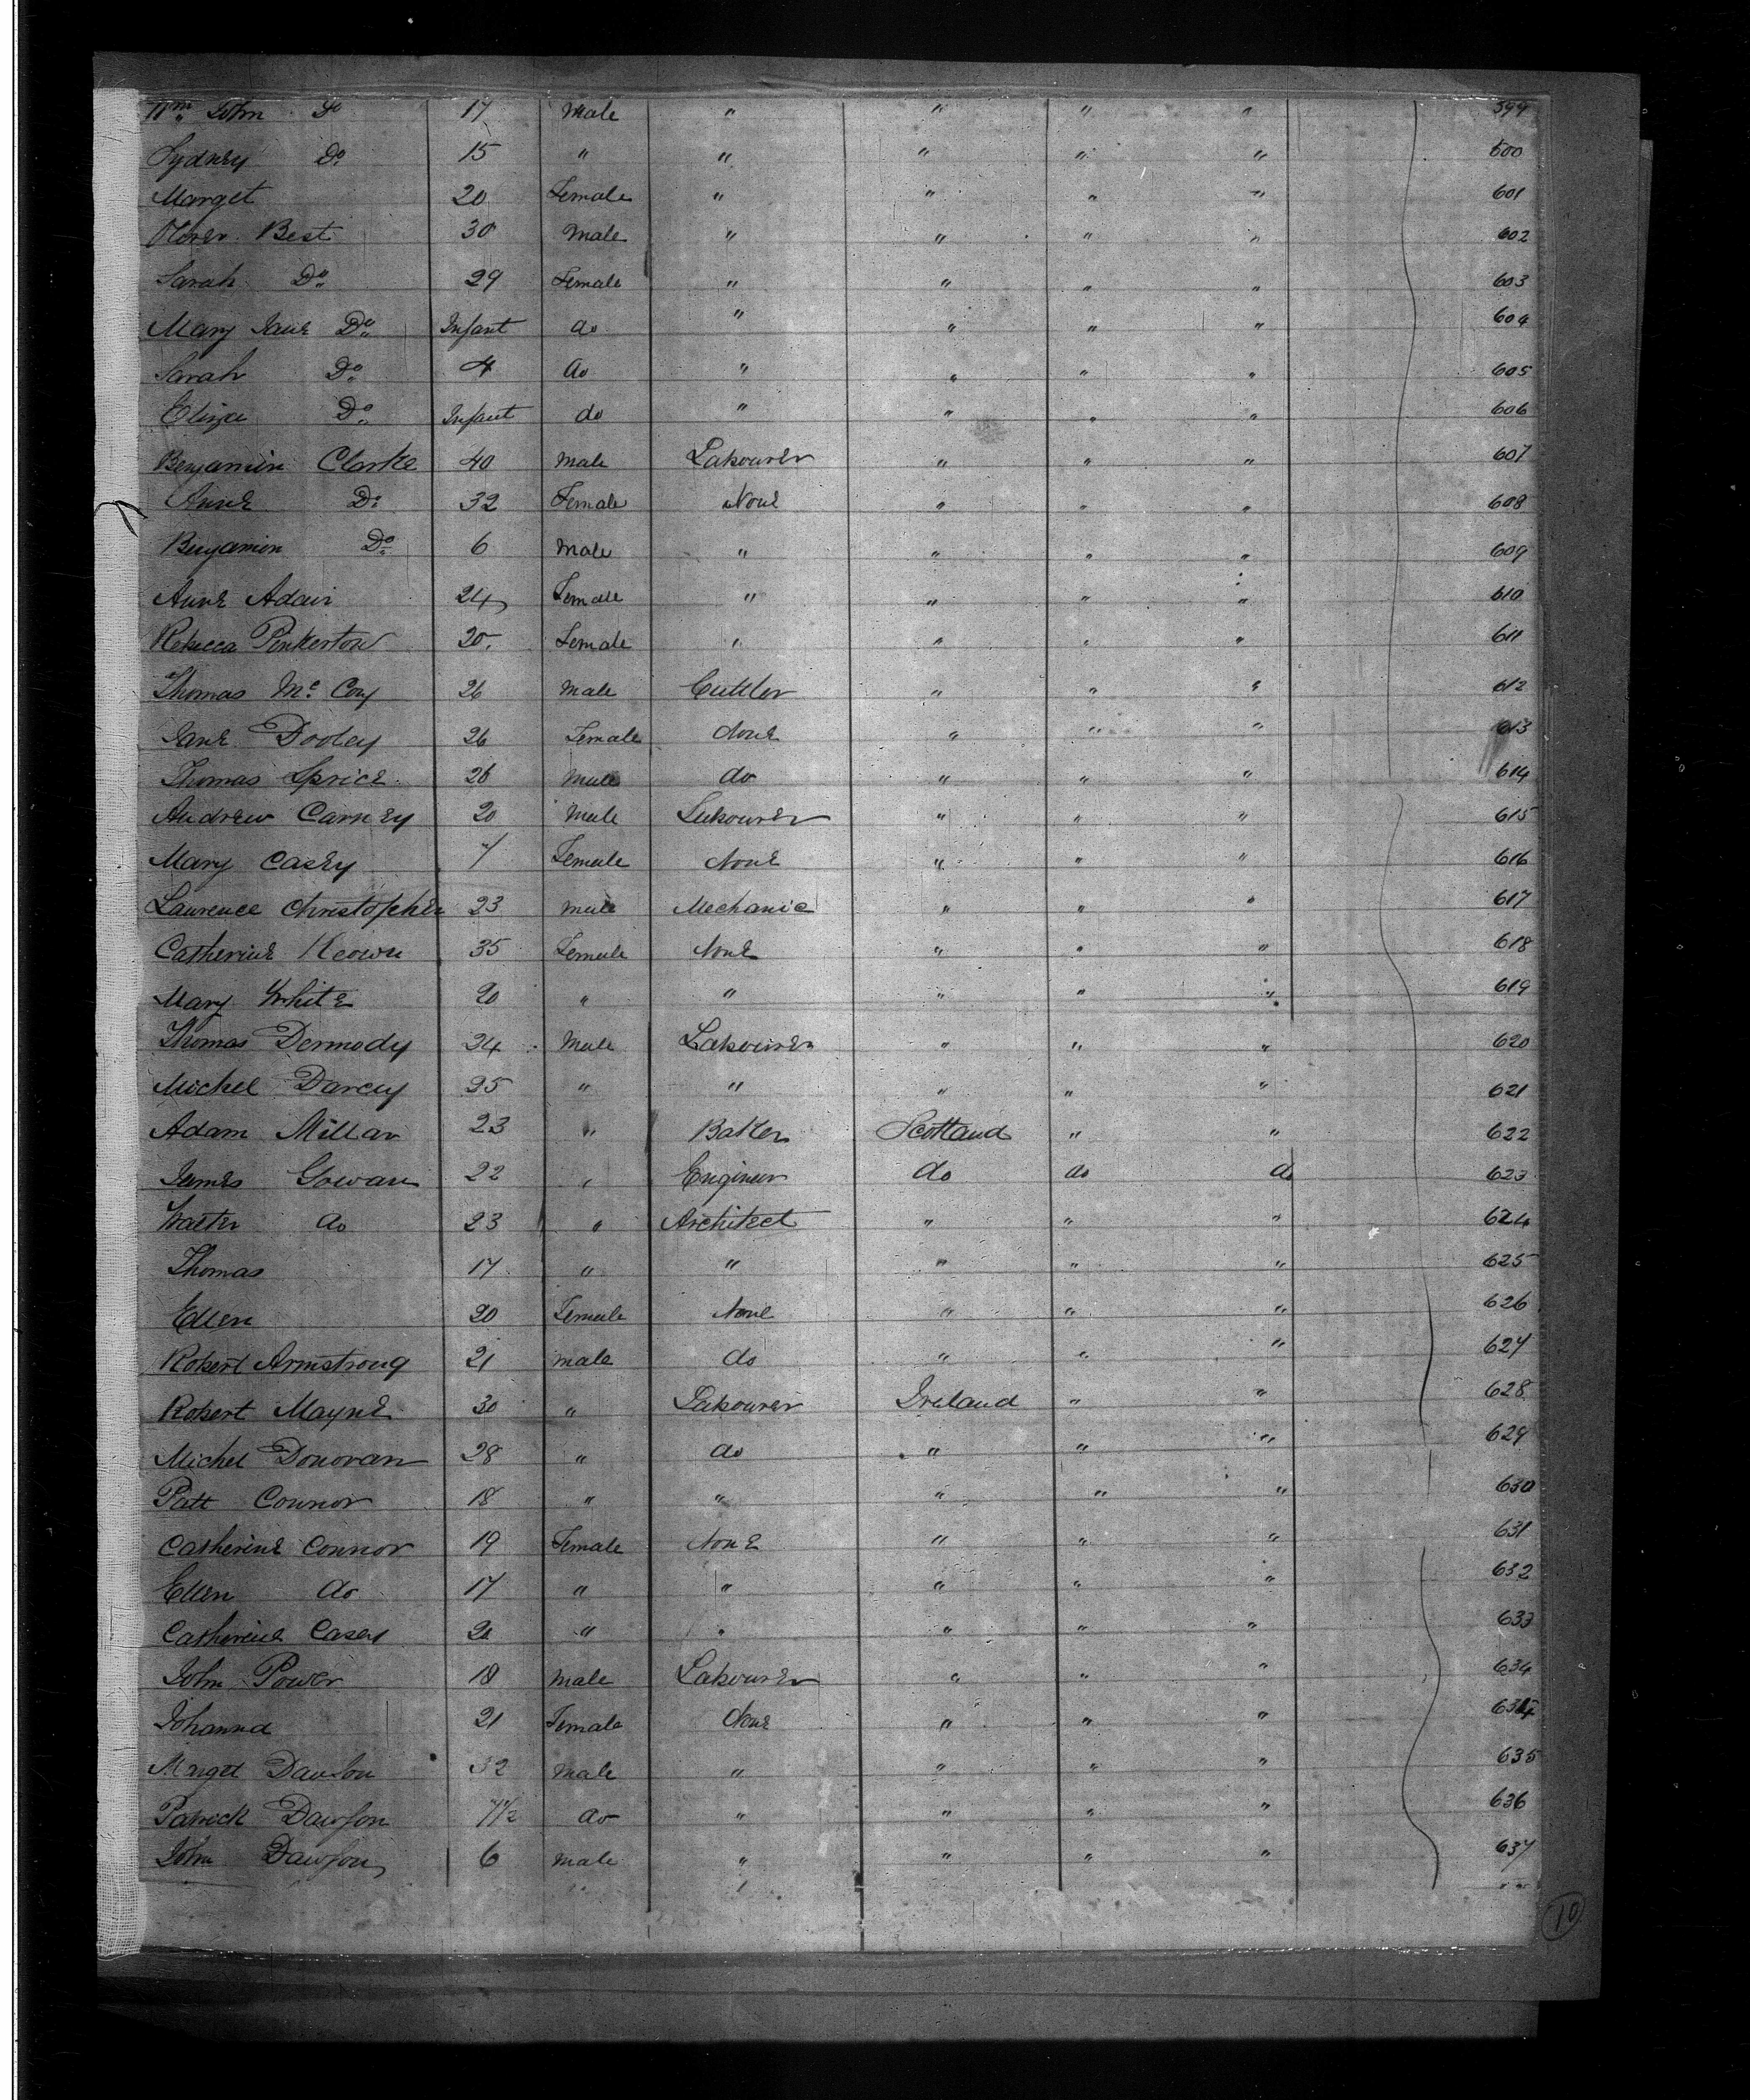 Wm John Do 17 Male " " " " 599
Sydney Do 15 " " " " " 600
Marget 20 Female " " " " 601
Oliver Best 30 Male " " " " 602
Sarah Do 29 Female " " " " 603
Mary Jane Do Infant do " " " " 604
Sarah Do 4 do " " " " 605
Eliza Do Infant do " " " " 606
Benjamin Clarke 40 Male Labourer " " " 607
Anne Do 32 Female None " " " 608
Benjamin Do 6 Male " " " " 609
Anne Adair 24 Female " " " " 610
Rebecca Pinkerton 20 Female " " " " 611
Thomas Mc Coy 26 Male Cuttler " " " 612
Jane Dooley 26 Female None " " " 613
Thomas Sprice 26 Male do " " " 614
Andrew Carney 20 Male Labourer " " " 615
Mary Casey 7 Female None " " " 616
Laurence Christopher 23 Male Mechanic " " " 617
Catherine Keown 35 Female None " " " 618
Mary White 20 " " " " " 619
Thomas Dermody 24 Male Labourer " " " 620
Michel Darcey 25 " " " " " 621
Adam Millar 23 " Baker Scotland " " 622
James Gowan 22 " Engineer do do do 623
Walter do 23 " Architect " " " 624
Thomas 17 " " " " " 625
Ellen 20 Female None " " " 626
Robert Armstrong 21 male do " " " 627
Robert Mayne 30 " Labourer Ireland " " 628
Michel Donovan 28 " do " " " 629
Patt Connor 18 " " " " " 630
Catherine Connor 19 Female None " " " 631
Ellen do 17 " " " " " 632
Catherine Casey " " " " " 633
John Power 18 Male Labourer " " " 634
Johanna 21 Female None " " "
Marget Dawson 32 Male " " " " 635
Patrick Dawson 7 1/2 do " " " " 636
John Dawson 6 Male " " " " 637
10